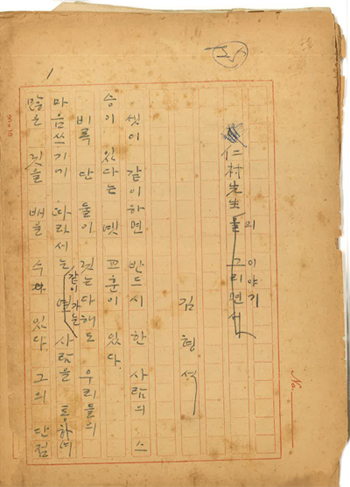 1
仁村先生을 그리면서
의 이야기
김형석
셋이 같이하면 반드시 한 사람의 스
승이 있다는 옛 교훈이 있다.
비록 단 둘이 걷는다해도 우리들의
마음쓰기에 따라서는 같이 가는 사람을 통하여
많은 것을 배울 수가 있다. 그의 단점
No.